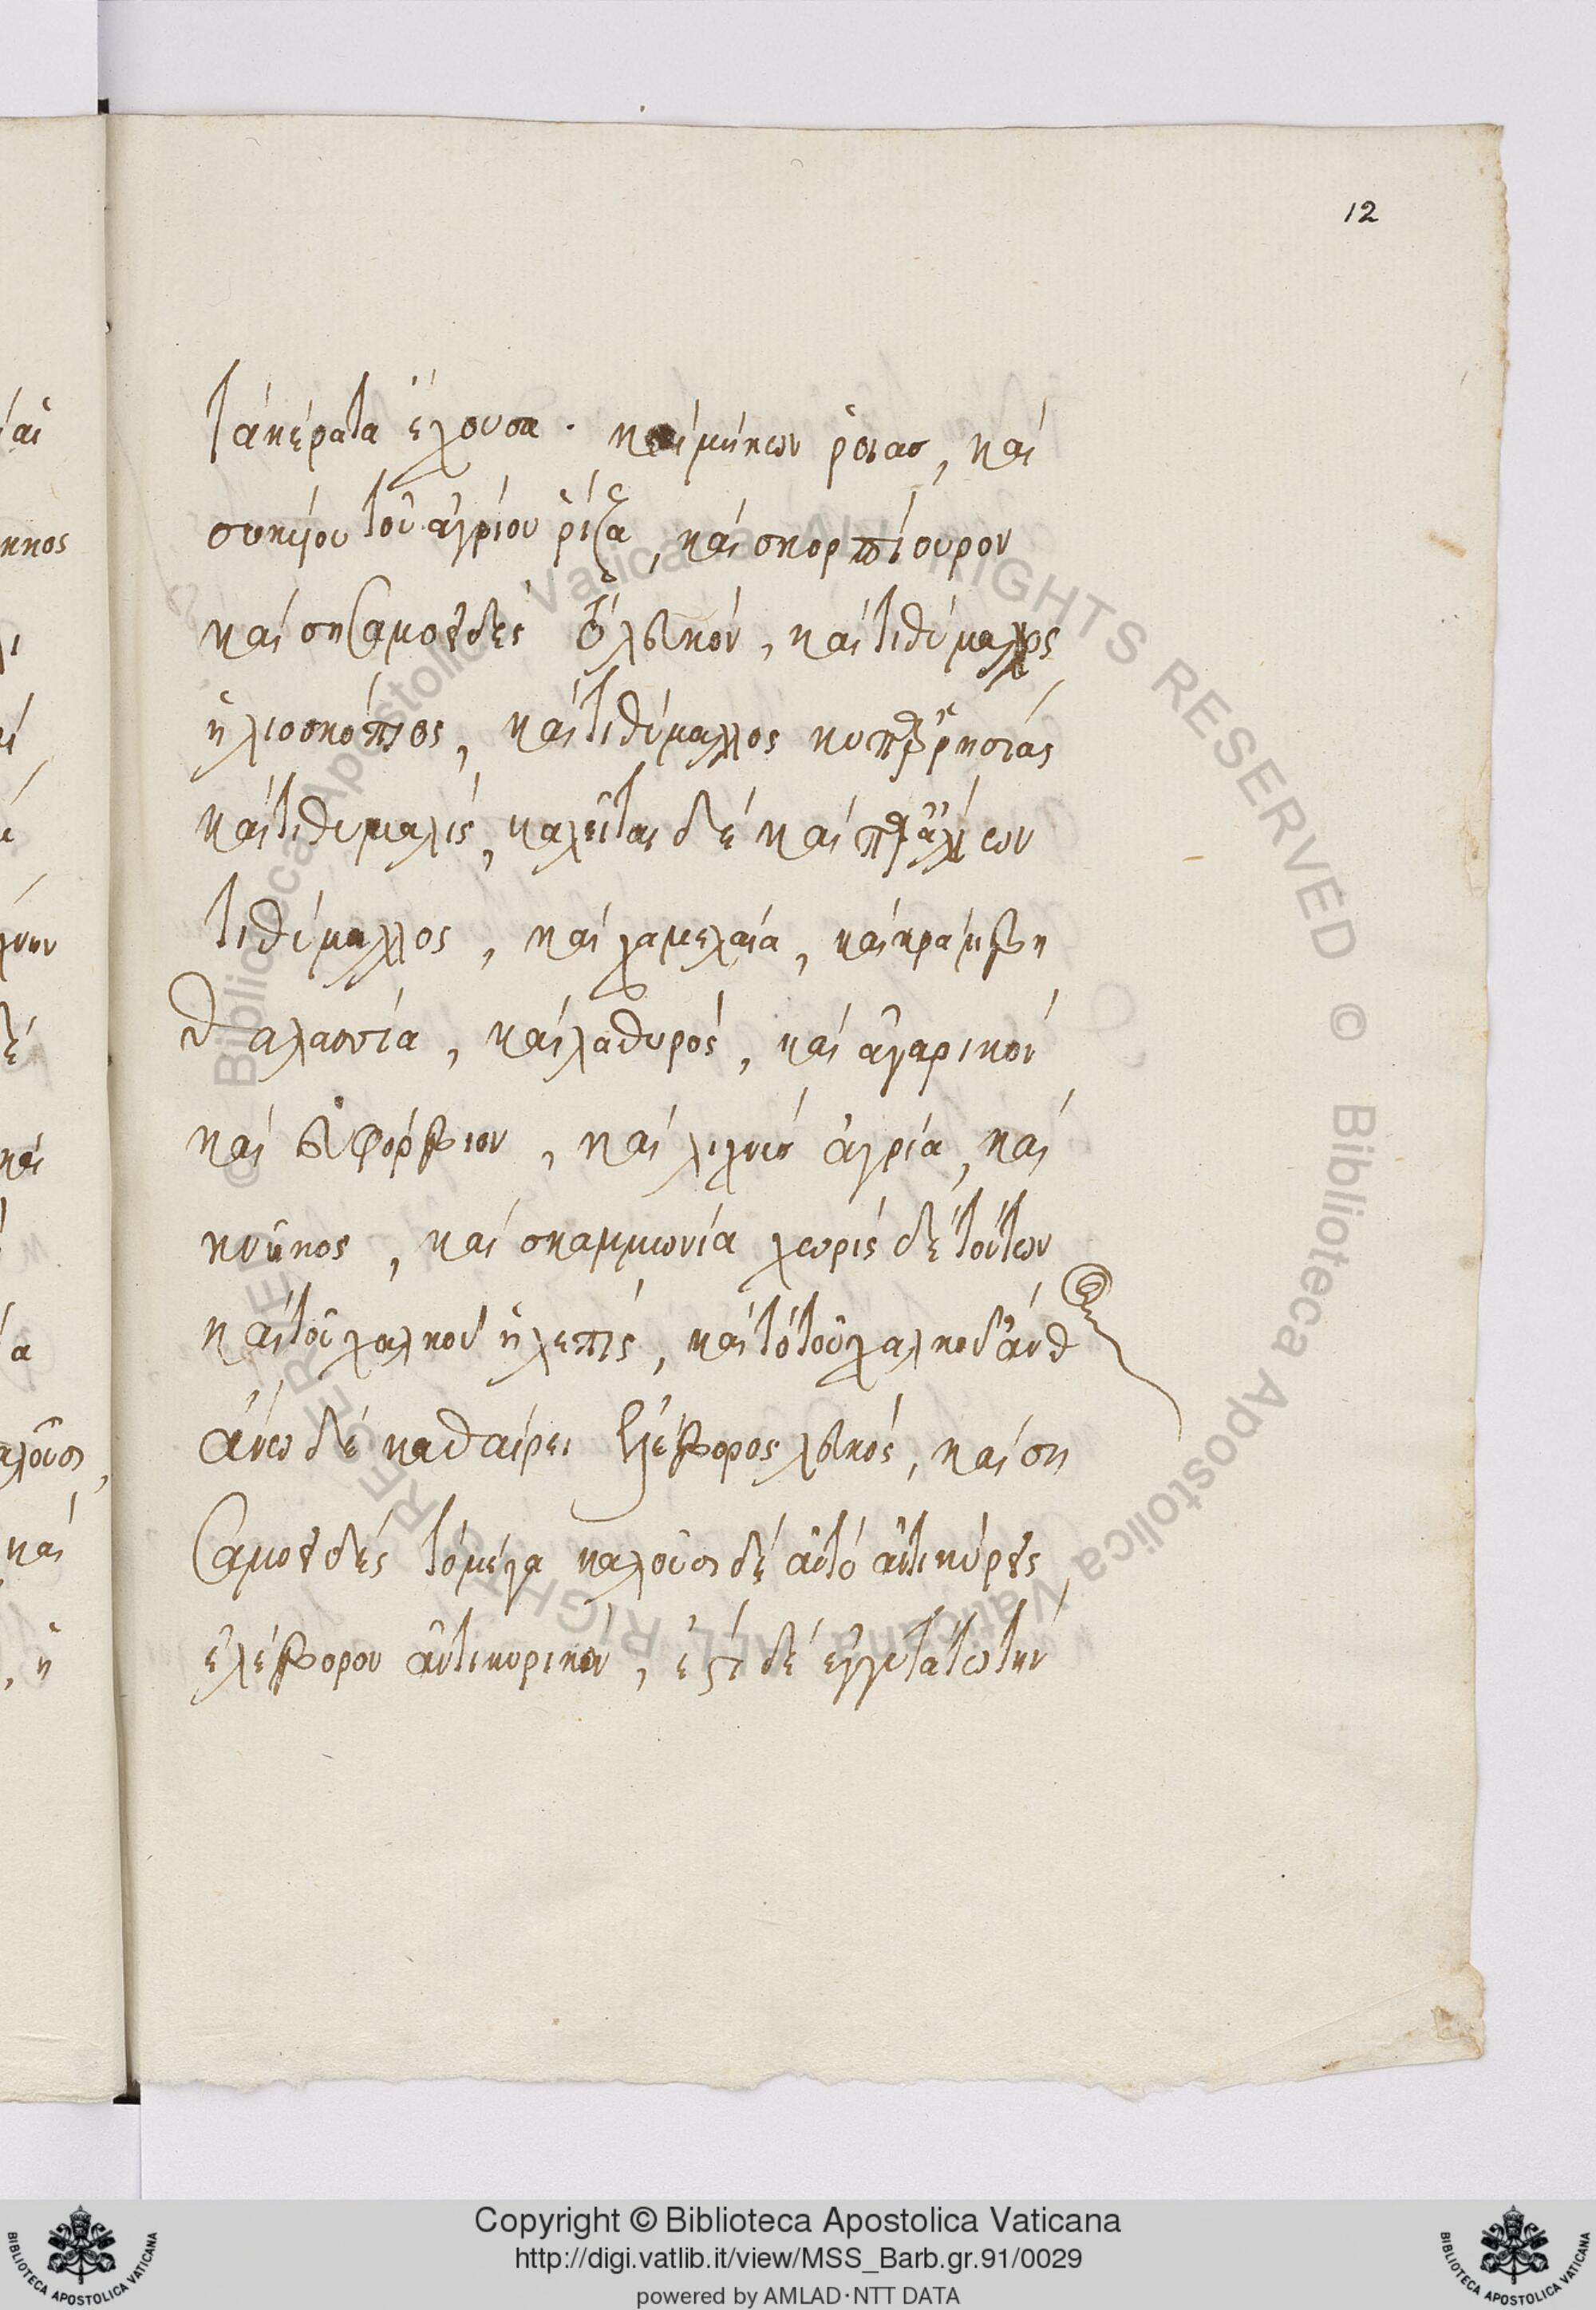 12
τὰ κέρατα ἔχουσα. καὶ μήκων ῥοιασ, καὶ
σικύου τοῦ ἀγρίου ῥίζα, καὶ σκορπίουρον
καὶ σησαμοειδὲς τὸ λευκόν, καὶ τιθύμαλλος
ἡλιοσκόπιος, καὶ τιθύμαλλος κυπαρισσίας
καὶ τιθυμαλίς, καλεῖται δὲ καὶ παράλιον
τιθύμαλλος, καὶ χαμελαία, καὶ κράμβη
θαλασσία, καὶ λαθυρός, καὶ ἀγαρικόν
καὶ εὐφόρβιον, καὶ λιχνίσ ἀγρία, καὶ
κνῖκος, καὶ σκαμμωνία χωρὶς δὲ τούτων
καὶ τοῦ χαλκοῦ ἡ λεπίς, καὶ τὸ τοῦ χαλκοῦ ἄνθ
ἄνω δὲ καθαίρει ἐλέβορος λευκός, καὶ ση
σαμοειδές τὸ μέγα καλοῦσι δὲ αὐτό ἀντικύρεις
ἐλέβορον ἀντικυρικόν, ἐστι δὲ ἐγγυτάτω τήν
Copyright © Biblioteca Apostolica Vaticana
http://digi.vatlib.it/view/MSS_Barb.gr.91/0029
powered by AMLAD·NTT DATA
BIBLIOTECA APOSTOLICA VATICANA
BIBLIOTECA APOSTOLICA VATICANA